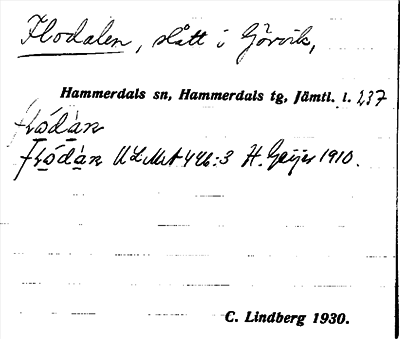 Flodalen, slått i Görvik,
Hammerdals sn, Hammerdals tg, Jämtl. l. 237
flòdàn
flòdàn ULMA 446:3 H. Geijer 1910.
C. Lindberg 1930.